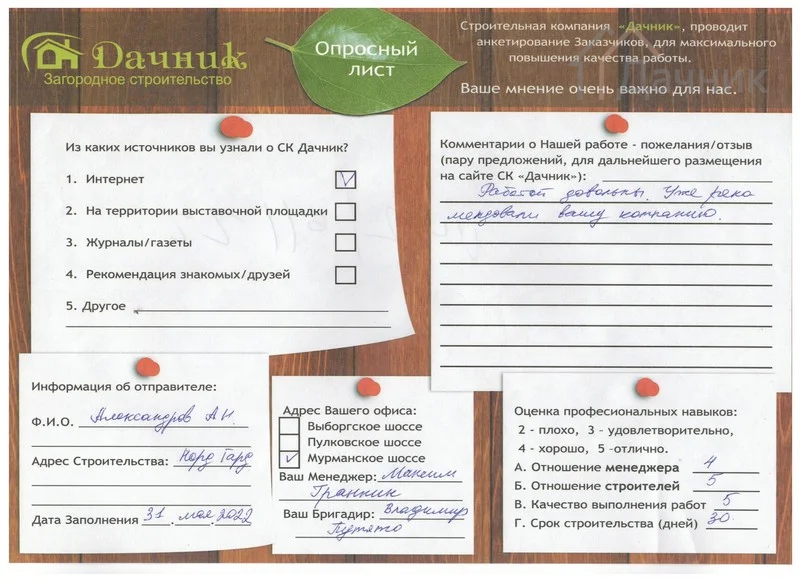 Дачник
Загородное строительство
Опросный
лист
Строительная компания «Дачник», проводит
анкетирование Заказчиков, для максимального
повышения качества работы.
Ваше мнение очень важно для нас.
Дачник
Из каких источников вы узнали о СК Дачник?
1. Интернет
2. На территории выставочной площадки
3. Журналы/газеты
4. Рекомендация знакомых/друзей
5. Другое
Комментарии о Нашей работе - пожелания/отзыв
(пару предложений, для дальнейшего размещения
на сайте СК «Дачник»):
Работой довольны. Уже реко
мендовали вашу компанию.
Информация об отправителе:
Ф.И.О. Александров А.Н.
Адрес Строительства: Норд Гард
Дата Заполнения 31 . мая . 2022
Адрес Вашего офиса:
Выборгское шоссе
Пулковское шоссе
Мурманское шоссе
Ваш Менеджер: Максим
Гранкин
Ваш Бригадир: Владимир
Путято
Оценка професиональных навыков:
2 - плохо, 3 - удовлетворительно,
4 - хорошо, 5 -отлично.
А. Отношение менеджера 4
Б. Отношение строителей 5
В. Качество выполнения работ 5
Г. Срок строительства (дней) 30.